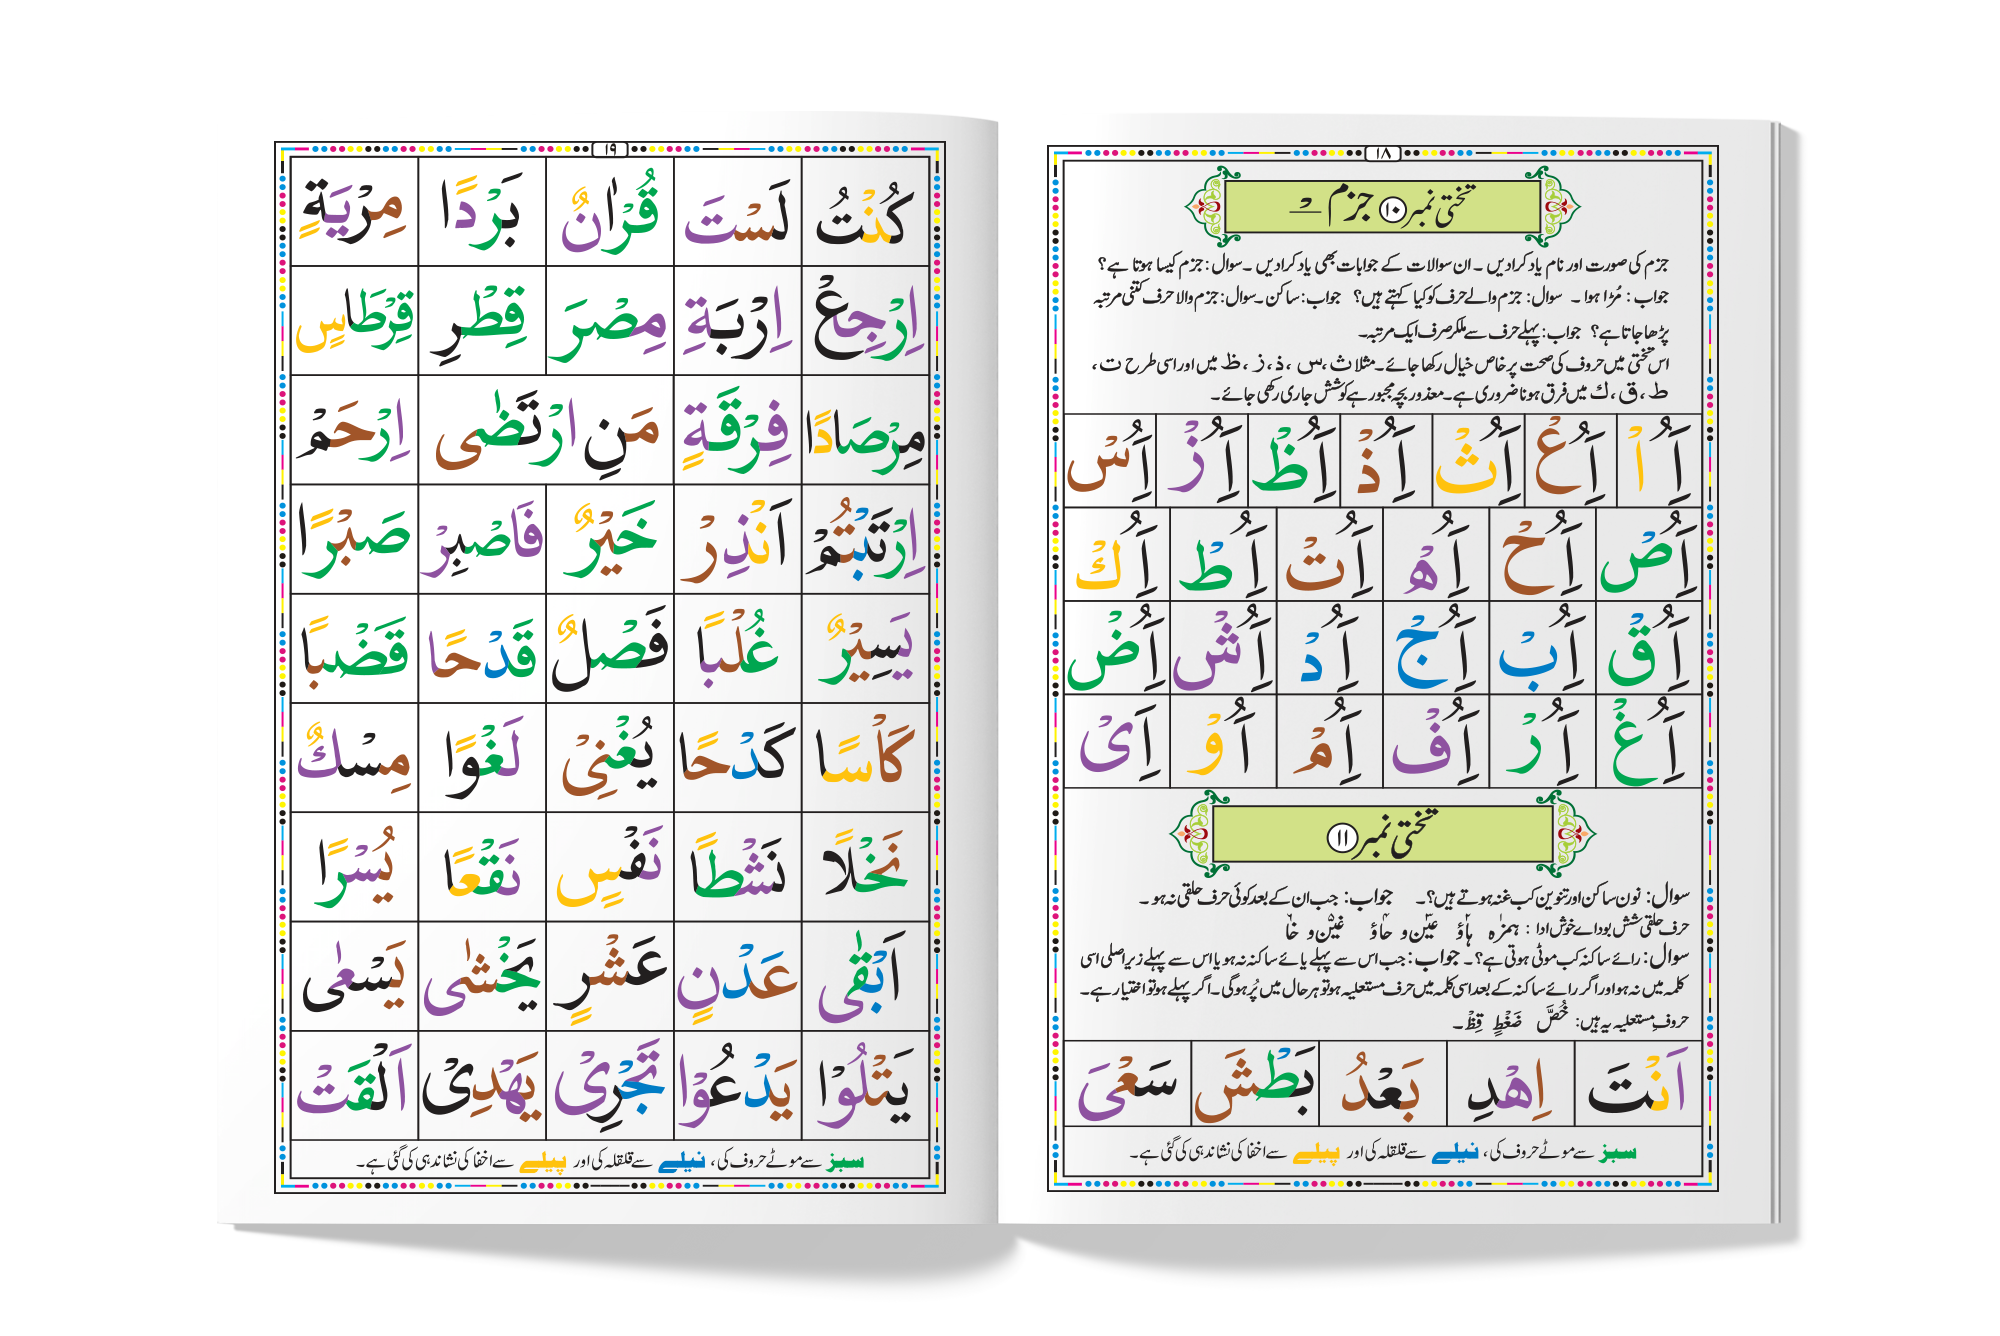 ۱۸
تختی نمبر ۱۰ جزم ـْـ
جزم کی صورت اور نام یاد کرادیں ۔ ان سوالات کے جوابات بھی یاد کرادیں ۔ سوال: جزم کیسا ہوتا ہے؟
جواب : مُڑا ہوا ۔ سوال: جزم والے حرف کو کیا کہتے ہیں؟ جواب: ساکن ۔ سوال: جزم والا حرف کتنی مرتبہ
پڑھا جاتا ہے؟ جواب: پہلے حرف سے ملکر صرف ایک مرتبہ۔
اس تختی میں حروف کی صحت پر خاص خیال رکھا جائے۔ مثلا ث ، س ، ذ ، ز ، ظ میں اور اسی طرح ت ،
ط ، ق ، ك میں فرق ہونا ضروری ہے۔ معذور بچہ مجبور ہے کوشش جاری رکھی جائے۔
أَِاُ أَِاُعْ أَِاُثْ أَِاُذْ أَِاُظْ أَِاُزْ أَِاُسْ
أَِاُصْ أَِاُحْ أَِاُتْ أَِاُهْ أَِاُطْ أَِاُكْ
أَِاُقْ أَِاُبْ أَِاُجْ أَِاُدْ أَِاُشْ أَِاُضْ
أَِاُغْ أَِاُرْ أَِاُفْ أَِاُمْ اَُوْ اَِیْ
تختی نمبر ۱۱
سوال: نون ساکن اور تنوین کب غنہ ہوتے ہیں؟۔ جواب: جب ان کے بعد کوئی حرف حلقی نہ ہو ۔
حرف حلقی شش بود اے خوش ادا : ہمزہ ہاؤ عین و حاؤ غین و خا
سوال: رائے ساکنہ کب موٹی ہوتی ہے؟۔ جواب: جب اس سے پہلے یائے ساکنہ نہ ہو یا اس سے پہلے زیر اصلی اسی
کلمہ میں نہ ہو اور اگر رائے ساکنہ کے بعد اسی کلمہ میں حرف مستعلیہ ہو تو ہر حال میں پُر ہوگی۔ اگر پہلے ہو تو اختیار ہے۔
حروفِ مستعلیہ یہ ہیں: خُصَّ ضَغْطٍ قِظْ ۔
اَنْتَ اِهْدِ بَعْدُ بَطْشَ سَعْیَ
سبز سے موٹے حروف کی، نیلے سے قلقلہ کی اور پیلے سے اخفا کی نشاندہی کی گئی ہے۔
۱۹
كُنْتُ لَسْتَ قُرْاٰنٌ بَرْدًا مِرْيَةٍ
اِرْجِعْ اِرْبَةِ مِصْرَ قِطْرِ قِرْطَاسٍ
مِرْصَادًا فِرْقَةٍ مَنِ ارْتَضٰى اِرْحَمْ
اِرْتَبْتُمْ اَنْذِرْ خَيْرٌ فَاصْبِرْ صَبْرًا
يَسِيْرٌ غُلْبًا فَصْلٌ قَدْحًا قَضْبًا
كَاْسًا كَدْحًا يُغْنِیْ لَغْوًا مِسْكٌ
نَخْلًا نَشْطًا نَفْسٍ نَقْعًا يُسْرًا
اَبْقٰى عَدْنٍ عَشْرٍ يَخْشٰى يَسْعٰى
يَتْلُوْا يَدْعُوْا تَجْرِیْ يَهْدِیْ اَلْقَتْ
سبز سے موٹے حروف کی، نیلے سے قلقلہ کی اور پیلے سے اخفا کی نشاندہی کی گئی ہے۔